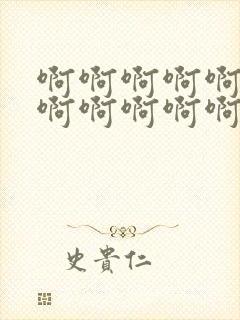 啊啊啊啊啊
啊啊啊啊啊
史貴仁